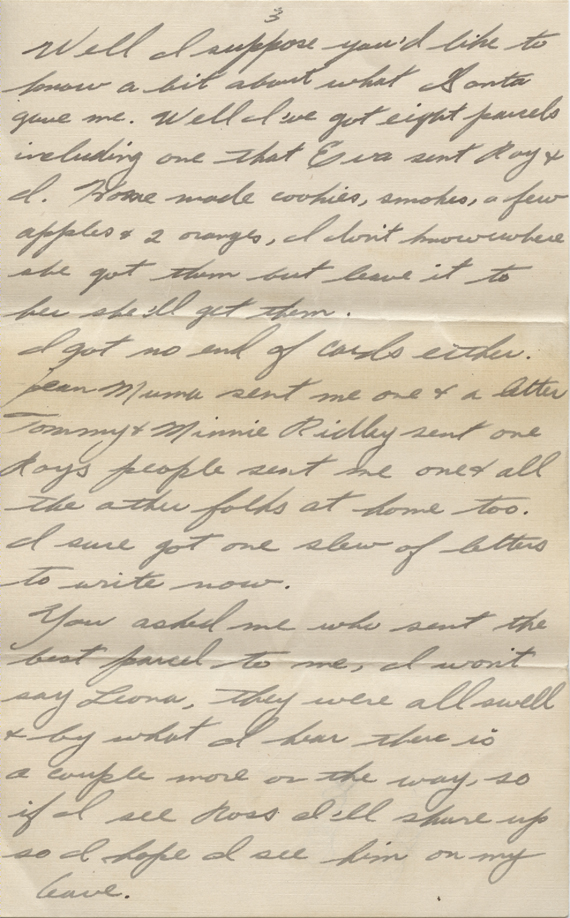 3
Well I suppose you'd like to
know a bit about what Santa
gave me. Well I've got eight parcels
including one that Eva sent Roy &
I. Home made cookies, smokes, a few
apples & 2 oranges, I don't know where
she got them but leave it to
her she'll get them.
I got no end of cards either.
Jean Muma sent me one & a letter
Tommy & Minnie Ridley sent one
Roys people sent me one & all
the other folks at home too.
I sure got one slew of letters
to write now.
You asked me who sent the
best parcel to me, I won't
say Leona, they were all swell
& by what I hear there is
a couple more on the way, so
if I see Ross I'll share up
so I hope I see him on my
leave.